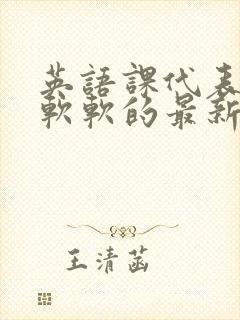 英語課代表
軟軟的最新
王清菡